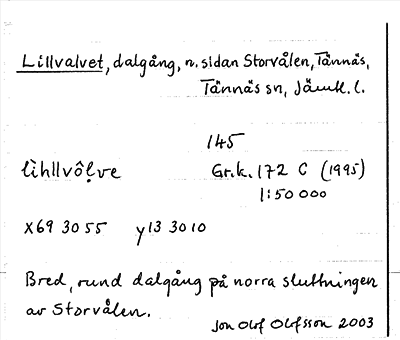 Lillvalvet, dalgång, n. sidan Storvålen, Tännäs,
Tännäs sn, Jämtl. l.
145
lìhllvôḷve Gr.k. 172 C (1995)
1:50 000
X69 30 55 y13 30 10
Bred, rund dalgång på norra sluttningen
av Storvålen.
Jon Olof Olofsson 2003